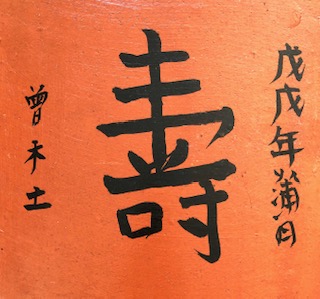 戊戌年蒲月
壽
曾木土